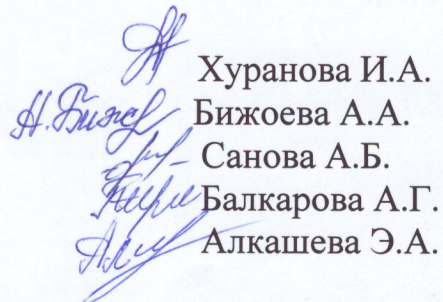 Хуранова И.А.
Н. Бижо Бижоева А.А.
Санова А.Б.
Балкарова А.Г.
Алкашева Э.А.